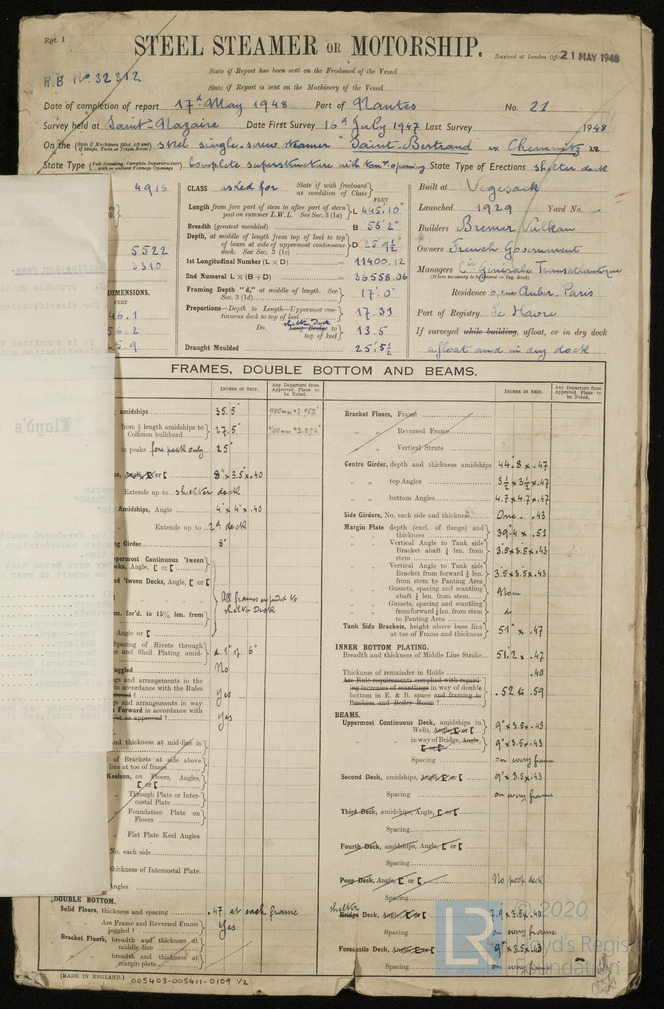 Rpt. 1
STEEL STEAMER OR MOTORSHIP.
Received at London Office 21 MAY 1948
State if Report has been sent on the Freeboard of the Vessel
H.B. No. 32312
State if Report is sent on the Machinery of the Vessel
Date of completion of report 17th May 1948 Port of Nantes No. 21
Survey held at Saint-Nazaire Date First Survey 16th July 1947 Last Survey 1948
On the steel single-screw steamer "Saint-Bertrand ex Chemnitz
State Type (Full Scantling, Complete Superstructure with or without Tonnage Openings) Complete superstructure with Ton. opening State Type of Erections shelter deck
4918
5522
3310
DIMENSIONS.
FEET
46.1
56.2
5.9
CLASS asked for State if with freeboard as condition of Class
FEET
Length from fore part of stem to after part of stern post on summer L.W.L. See Sec. 3 (1a) L 445.10"
Breadth (greatest moulded) B 56'2"
Depth, at middle of length from top of keel to top of beam at side of uppermost continuous deck. See Sec. 3 (1c) D 25'9½"
1st Longitudinal Number (L × D) 11400.12
2nd Numeral L × (B + D) 36558.06
Framing Depth "d," at middle of length. See Sec. 3 (1d) 17'.0"
Proportions—Depth to Length—Uppermost continuous deck to top of keel 17.31
Do. shelter deck Long Bridge to top of keel 13.5
Draught Moulded 25'5½
Built at Vegesack
Launched 1929 Yard No.
Builders Bremer Vulkan
Owners French Government
Managers Cie Générale Transatlantique
Residence 6, rue Auber. Paris
Port of Registry Le Havre
If surveyed while building, afloat, or in dry dock
afloat and in dry dock
FRAMES, DOUBLE BOTTOM AND BEAMS.
INCHES IN SHIP.
Any Departure from Approved Plans to be Noted.
INCHES IN SHIP.
Any Departure from Approved Plans to be Noted.
amidships 35.5"
from ¾ length amidships to Collision bulkhead 27.5"
in peaks fore peak only 25"
8" × 3.5 × .40
Extends up to shelter deck
Amidships, Angle 4" × 4" × .40
Extends up to 2nd deck
ng Girder 8"
ppermost Continuous 'tween
cks, Angle, [ or [
nd 'tween Decks, Angle, [ or [
All frames extend to shelter Deck
en. for'd. to 15% len. from
Angle or [
Spacing of Rivets through
and Shell Plating amid- d. 1" of 6"
oggled No
gs and arrangements in the
in accordance with the Rules Yes
gs and arrangements in way
Forward in accordance with
or as approved? Yes
nd thickness at mid-line in
of Brackets at side above
line at toe of frame
Keelson, on Floors, Angles,
[ or [
Through Plate or Intercostal Plate
Foundation Plate on Floors
Flat Plate Keel Angles
No. each side
thickness of Intercostal Plate
Angles
DOUBLE BOTTOM.
Solid Floors, thickness and spacing .47 at each frame
Are Frame and Reversed Frame joggled? Yes
Bracket Floors, breadth and thickness at middle line
breadth and thickness at margin plate
Bracket Floors, Frame
Reversed Frame
Vertical Struts
Centre Girder, depth and thickness amidships 44".8 × .47
top Angles 3½ × 3½ × .47
bottom Angles 4.7 × 4.7 × .47
Side Girders, No. each side and thickness One. .43
Margin Plate depth (excl. of flange) and thickness 39".4 × .51
Vertical Angle to Tank side Bracket abaft ¼ len. from stem 3.5 × 3.5 × .43
Vertical Angle to Tank side Bracket from forward ¼ len. from stem to Panting Area 3.5 × 3.5 × .43
Gussets, spacing and scantling abaft ¼ len. from stem None
Gussets, spacing and scantling from forward ¼ len. from stem to Panting Area do
Tank Side Brackets, height above base line at toe of Frame and thickness 51" × .47
INNER BOTTOM PLATING.
Breadth and thickness of Middle Line Strake 51".2 × .47
Thickness of remainder in Holds .40
Are Rule requirements complied with regarding increases of scantlings in way of double bottom in E. & B. space and framing in Bunkers and Boiler Room? .52 to .59
BEAMS.
Uppermost Continuous Deck, amidships in Wells, Angle, [ or [ 9" × 3.5 × .43
in way of Bridge, Angle, [ or [ 9" × 3.5 × .43
Spacing on every frame
Second Deck, amidships, Angle, [ or [ 9" × 3.5 × .43
Spacing on every frame
Third Deck, amidships, Angle, [ or [
Spacing
Fourth Deck, amidships, Angle, [ or [
Spacing
Poop Deck, Angle, [ or [ No poop deck
Spacing
shelter
Bridge Deck, Angle, [ or [ 7.9 × 3.5 × .43
Spacing on every frame
Forecastle Deck, Angle, [ or [ 9" × 3.5 × .43
Spacing on every frame
(MADE IN ENGLAND.)
005403-005411-0109 1/2
LR
© 2020
Lloyd's Register
Foundation